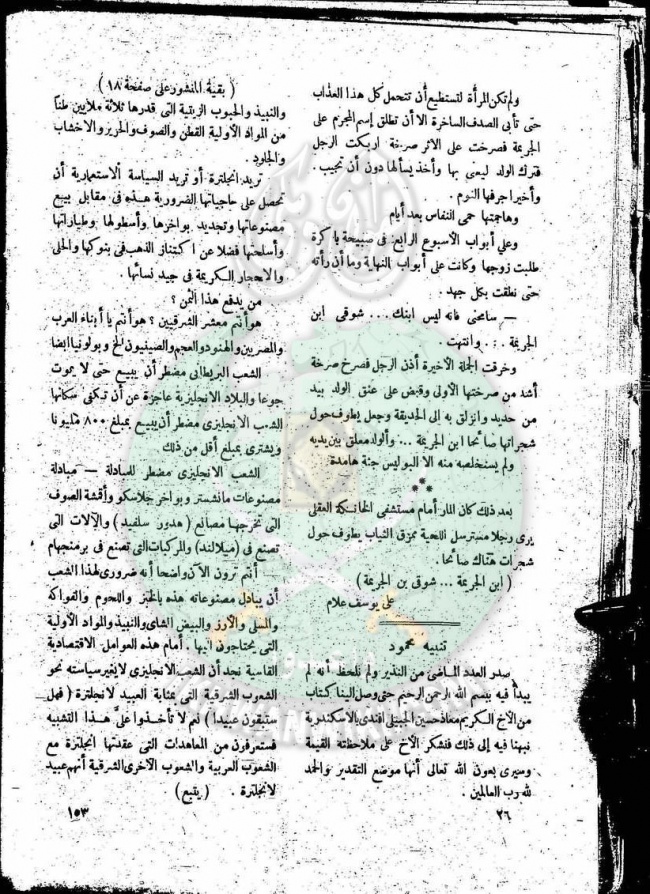 ولم تكن المرأة لتستطيع أن تتحمل كل هذا العذاب
حتى تأبى الصدف الساخرة الا أن تطلق إسم المجرم على
الجريمة فصرخت على الاثر صرخة اربكت الرجل
فترك الولد ليعنى بها وأخذ يسألها دون أن تجيب .
وأخيرا جرفها النوم .
وهاجمتها حمى النفاس بعد أيام
وعلي أبواب الأسبوع الرابع في صبيحة باكرة
طلبت زوجها وكانت على أبواب النهاية وما أن رأته
حتى نطقت بكل جهد .
— سامحنى فانه ليس ابنك ... شوقى ابن
الجريمة . . . وانتهت .
وخرقت الجملة الأخيرة أذن الرجل فصرخ صرخة
أشد من صرختها الأولى وقبض على عنق الولد بيد
من حديد وانزلق به الى الحديقة وجعل يطوف حول
شجراتها صائحا ابن الجريمة ... والولد معلق بين يديه
ولم يستخلصه منه الا البوليس جثة هامدة
* * *
بعد ذلك كان المار أمام مستشفى الخانكة العقلى
يرى رجلا مسترسل اللحية ممزق الثياب يطوف حول
شجرات هناك صائحا .
( ابن الجريمة ... شوقى بن الجريمة )
على يوسف علام
تنبيه محمود
صدر العدد الماضى من النذير ولم نلحظ أنه لم
يبدأ فيه بسم الله الرحمن الرحيم حتى وصل الينا كتاب
من الأخ الكريم معاذ حسين الجبيلى افندى بالاسكندرية
نبهنا فيه إلى ذلك فنشكر الأخ على ملاحظته القيمة
وسيرى بعون الله تعالى أنها موضع التقدير والحمد
لله رب العالمين .
٢٦
( بقية المنشور على صفحة ١٨ )
والنبيذ والحبوب الزيتية التى قدرها ثلاثة ملايين طنا
من المواد الأولية القطن والصوف والحرير والاخشاب
والجلود .
تريد انجلترة أو تريد السياسة الاستعمارية أن
تحصل على حاجياتها الضرورية هذه فى مقابل بيع
مصنوعاتها وتجديد بواخرها وأسطولها وطياراتها
وأسلحتها فضلا عن اكتناز الذهب فى بنوكها والحلى
والاحجار الكريمة فى جيد نسائها .
من يدفع هذا الثمن ؟
هو أنتم معشر الشرقيين ؟ هو أنتم يا أبناء العرب
والمصريين والهنود والعجم والصينيون الخ وبولونيا ايضا
الشعب البريطانى مضطر أن يبيع حتى لا يموت
جوعا والبلاد الانجليزية عاجزة عن أن تكفى سكانها
الشعب الانجليزى مضطر أن يبيع بمبلغ ٨٠٠ مليونا
ويشترى بمبلغ أقل من ذلك
الشعب الانجليزى مضطر للمبادلة — مبادلة
مصنوعات مانشستر وبواخر جلاسكو وأقمشة الصوف
التى تخرجها مصانع ( هدور سلفيد ) والآلات التى
تصنع فى ( ميلاند ) والمركبات التى تصنع فى برمنجهام
أنتم ترون الآن واضحا أنه ضرورى لهذا الشعب
أن يبادل مصنوعاته هذه بالخبز واللحوم والفواكه
والمسلى والأرز والبيض الشاى والنبيذ والمواد الأولية
التى يحتاجون اليها . أمام هذه العوامل الاقتصادية
القاسية نجد أن الشعب الانجليزى لا يغير سياسته نحو
الشعوب الشرقية التى بمثابة العبيد لانجلترة ( فهل
ستبقون عبيدا ) نعم لا تأخذوا علىّ هذا التشبيه
فستعرفون من المعاهدات التى عقدتها انجلترة مع
الشعوب العربية والشعوب الأخرى الشرقية أنهم عبيد
لانجلترة . ( يتبع )
١٥٣